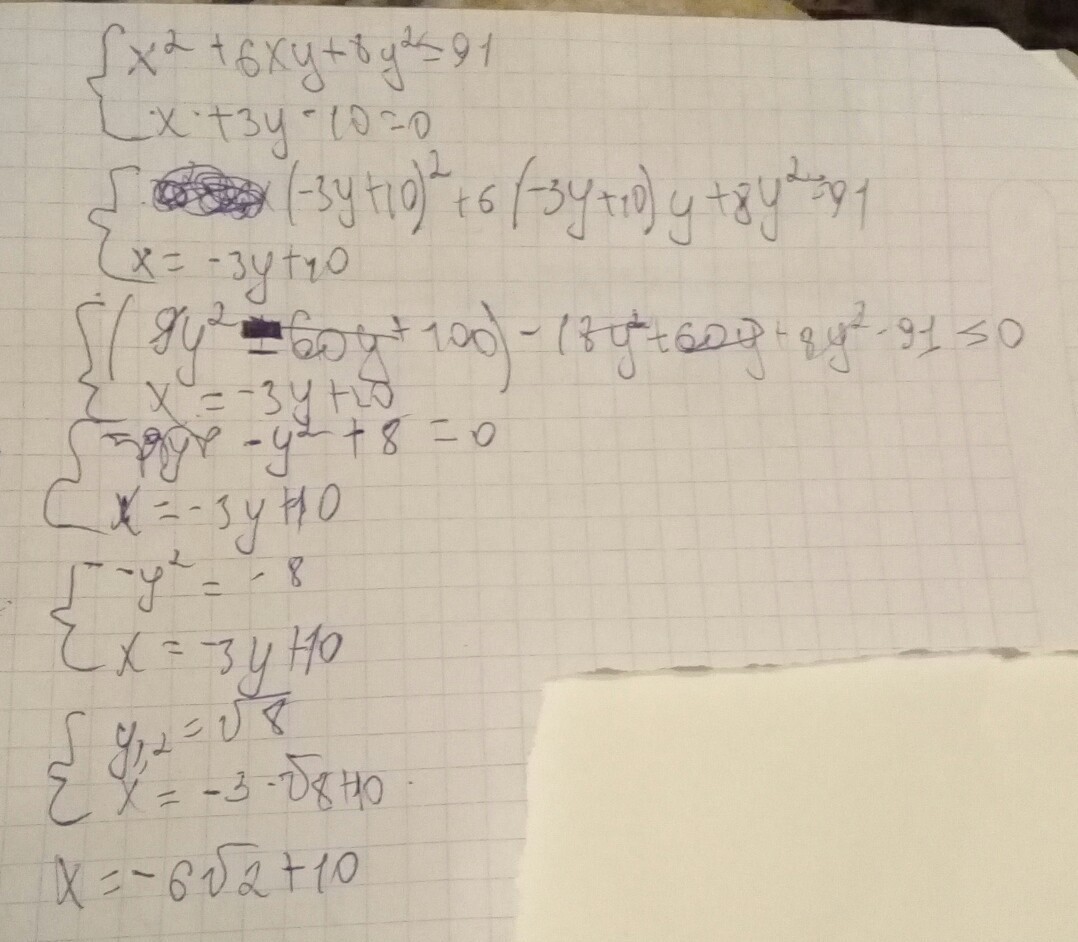 { x² + 6xy + 8y² = 91
x + 3y - 10 = 0
{ (-3y+10)² + 6(-3y+10)y + 8y² = 91
x = -3y+10
{ (9y² - 60y + 100) - 18y² + 60y + 8y² - 91 = 0
x = -3y+10
{ -y² + 8 = 0
x = -3y+10
{ -y² = -8
x = -3y+10
{ y₁,₂ = √8
x = -3·√8+10
x = -6√2 + 10